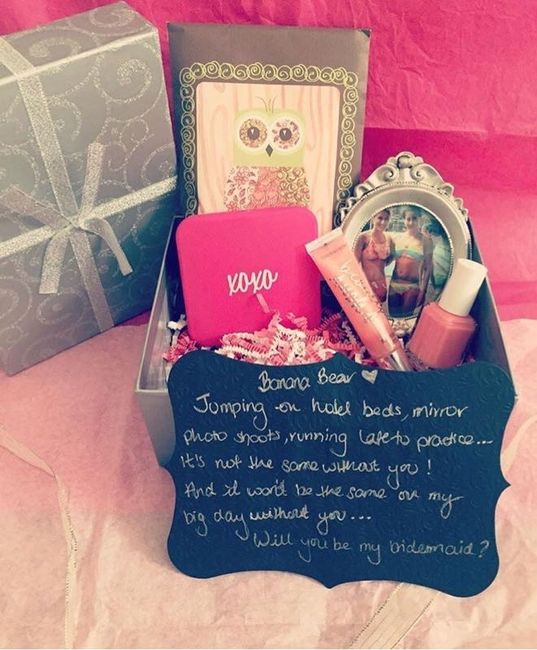 xoxo
Banana Bear ♡
Jumping on hotel beds, mirror
photo shoots, running late to practice...
it's not the same without you!
And it won't be the same on my
big day without you...
Will you be my bidesmaid?